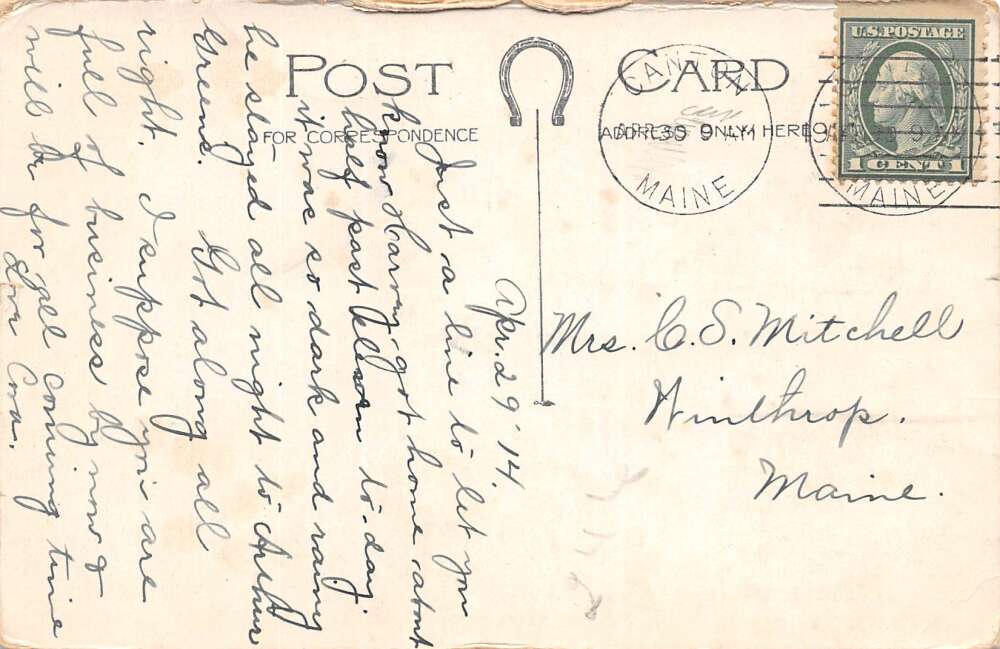 POST CARD
FOR CORRESPONDENCE
ADDRESS ONLY HERE
CANTON
APR 30 9 AM
MAINE
9 AM
MAINE
U.S. POSTAGE
1 CENT 1
Apr. 29 '14.
Just a line to let you
know Harvey got home about
half past eleven to-day.
it was so dark and rainy
he stayed all night to Arthur
Greene. Got along all
right. I suppose you are
full of business by now &
will be for spel coming time
Love Cora.
Mrs. C. S. Mitchell
Winthrop.
Maine.